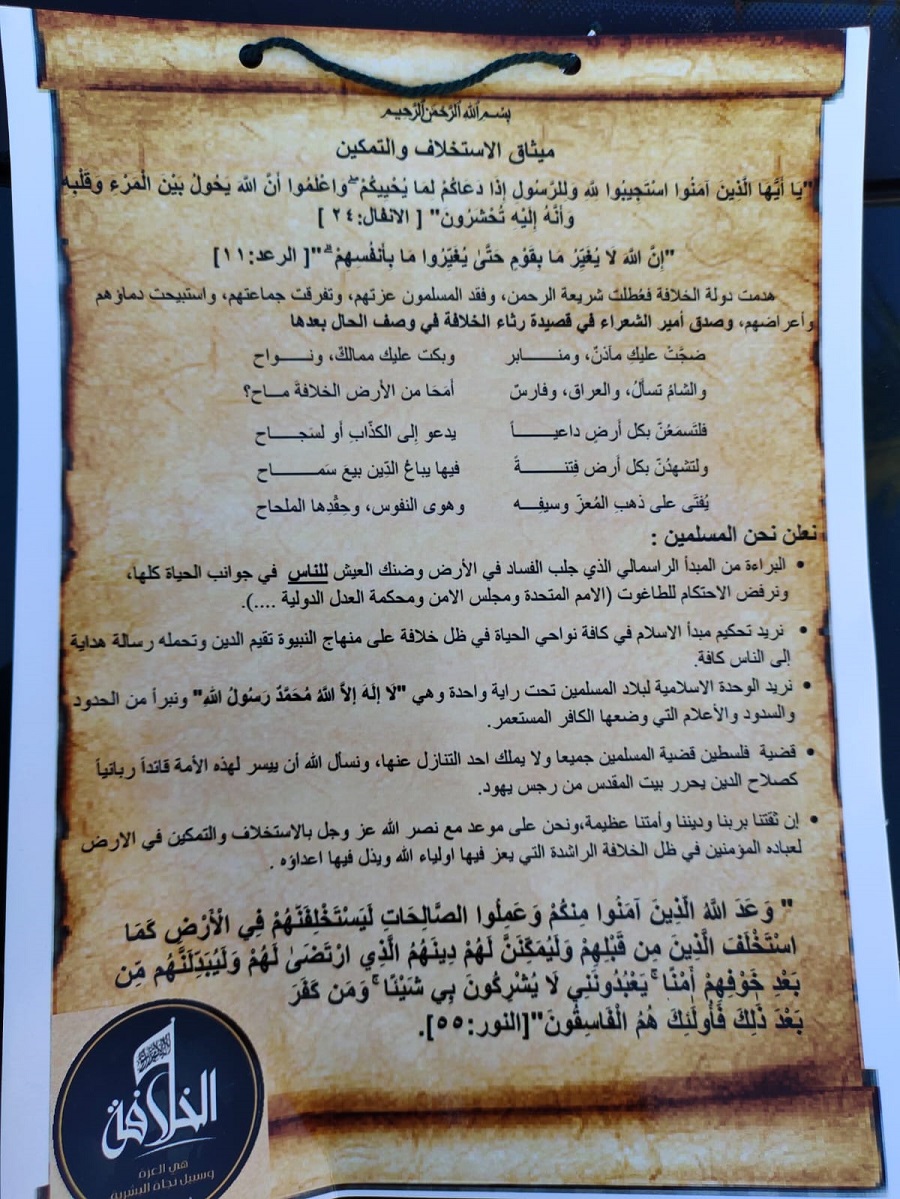 بسم الله الرحمن الرحيم
ميثاق الاستخلاف والتمكين
"يَا أَيُّهَا الَّذِينَ آمَنُوا اسْتَجِيبُوا لِلَّهِ وَلِلرَّسُولِ إِذَا دَعَاكُمْ لِمَا يُحْيِيكُمْ ۖ وَاعْلَمُوا أَنَّ اللَّهَ يَحُولُ بَيْنَ الْمَرْءِ وَقَلْبِهِ
وَأَنَّهُ إِلَيْهِ تُحْشَرُونَ" [ الانفال:٢٤ ]
"إِنَّ اللَّهَ لَا يُغَيِّرُ مَا بِقَوْمٍ حَتَّىٰ يُغَيِّرُوا مَا بِأَنفُسِهِمْ ۗ"[ الرعد:١١]
هدمت دولة الخلافة فعُطلت شريعة الرحمن، وفقد المسلمون عزتهم، وتفرقت جماعتهم، واستبيحت دماؤهم
وأعراضهم، وصدق أمير الشعراء في قصيدة رثاء الخلافة في وصف الحال بعدها
ضجَّتْ عليكِ مآذنٌ، ومنـــــابر وبكت عليك ممالكٌ، ونـــواح
والشامُ تسألُ، والعراق، وفارسٌ أمَحَا من الأرض الخلافةَ مـــاح؟
فلتَسمَعُنّ بكل أرضٍ داعيـــــاً يدعو إلى الكذّابِ أو لسَجـــــاح
ولتشهدُنّ بكل أرض فِتنـــــةً فيها يباعُ الدِّين بيعَ سَمـــــاح
يُفتَى على ذهبِ المُعزِّ وسيفِـــه وهوى النفوس، وحِقْدِها الملحاح
نعلن نحن المسلمين :
• البراءة من المبدأ الراسمالي الذي جلب الفساد في الأرض وضنك العيش للناس في جوانب الحياة كلها،
ونرفض الاحتكام للطاغوت (الامم المتحدة ومجلس الامن ومحكمة العدل الدولية ....).
• نريد تحكيم مبدأ الاسلام في كافة نواحي الحياة في ظل خلافة على منهاج النبوة تقيم الدين وتحمله رسالة هداية
إلى الناس كافة.
• نريد الوحدة الاسلامية لبلاد المسلمين تحت راية واحدة وهي "لَا إِلَهَ إِلاَّ اللَّهُ مُحَمَّدٌ رَسُولُ اللَّهِ" ونبرأ من الحدود
والسدود والأعلام التي وضعها الكافر المستعمر.
• قضية فلسطين قضية المسلمين جميعا ولا يملك احد التنازل عنها، ونسأل الله أن ييسر لهذه الأمة قائداً ربانياً
كصلاح الدين يحرر بيت المقدس من رجس يهود.
• إن ثقتنا بربنا وديننا وأمتنا عظيمة،ونحن على موعد مع نصر الله عز وجل بالاستخلاف والتمكين في الارض
لعباده المؤمنين في ظل الخلافة الراشدة التي يعز فيها اولياء الله ويذل فيها اعداؤه .
" وَعَدَ اللَّهُ الَّذِينَ آمَنُوا مِنكُمْ وَعَمِلُوا الصَّالِحَاتِ لَيَسْتَخْلِفَنَّهُمْ فِي الْأَرْضِ كَمَا
اسْتَخْلَفَ الَّذِينَ مِن قَبْلِهِمْ وَلَيُمَكِّنَنَّ لَهُمْ دِينَهُمُ الَّذِي ارْتَضَىٰ لَهُمْ وَلَيُبَدِّلَنَّهُم مِّن
بَعْدِ خَوْفِهِمْ أَمْنًا ۚ يَعْبُدُونَنِي لَا يُشْرِكُونَ بِي شَيْئًا ۚ وَمَن كَفَرَ
بَعْدَ ذَٰلِكَ فَأُولَٰئِكَ هُمُ الْفَاسِقُونَ"[النور:٥٥].
الخلافة
هي العزة
وسبيل نجاة البشرية